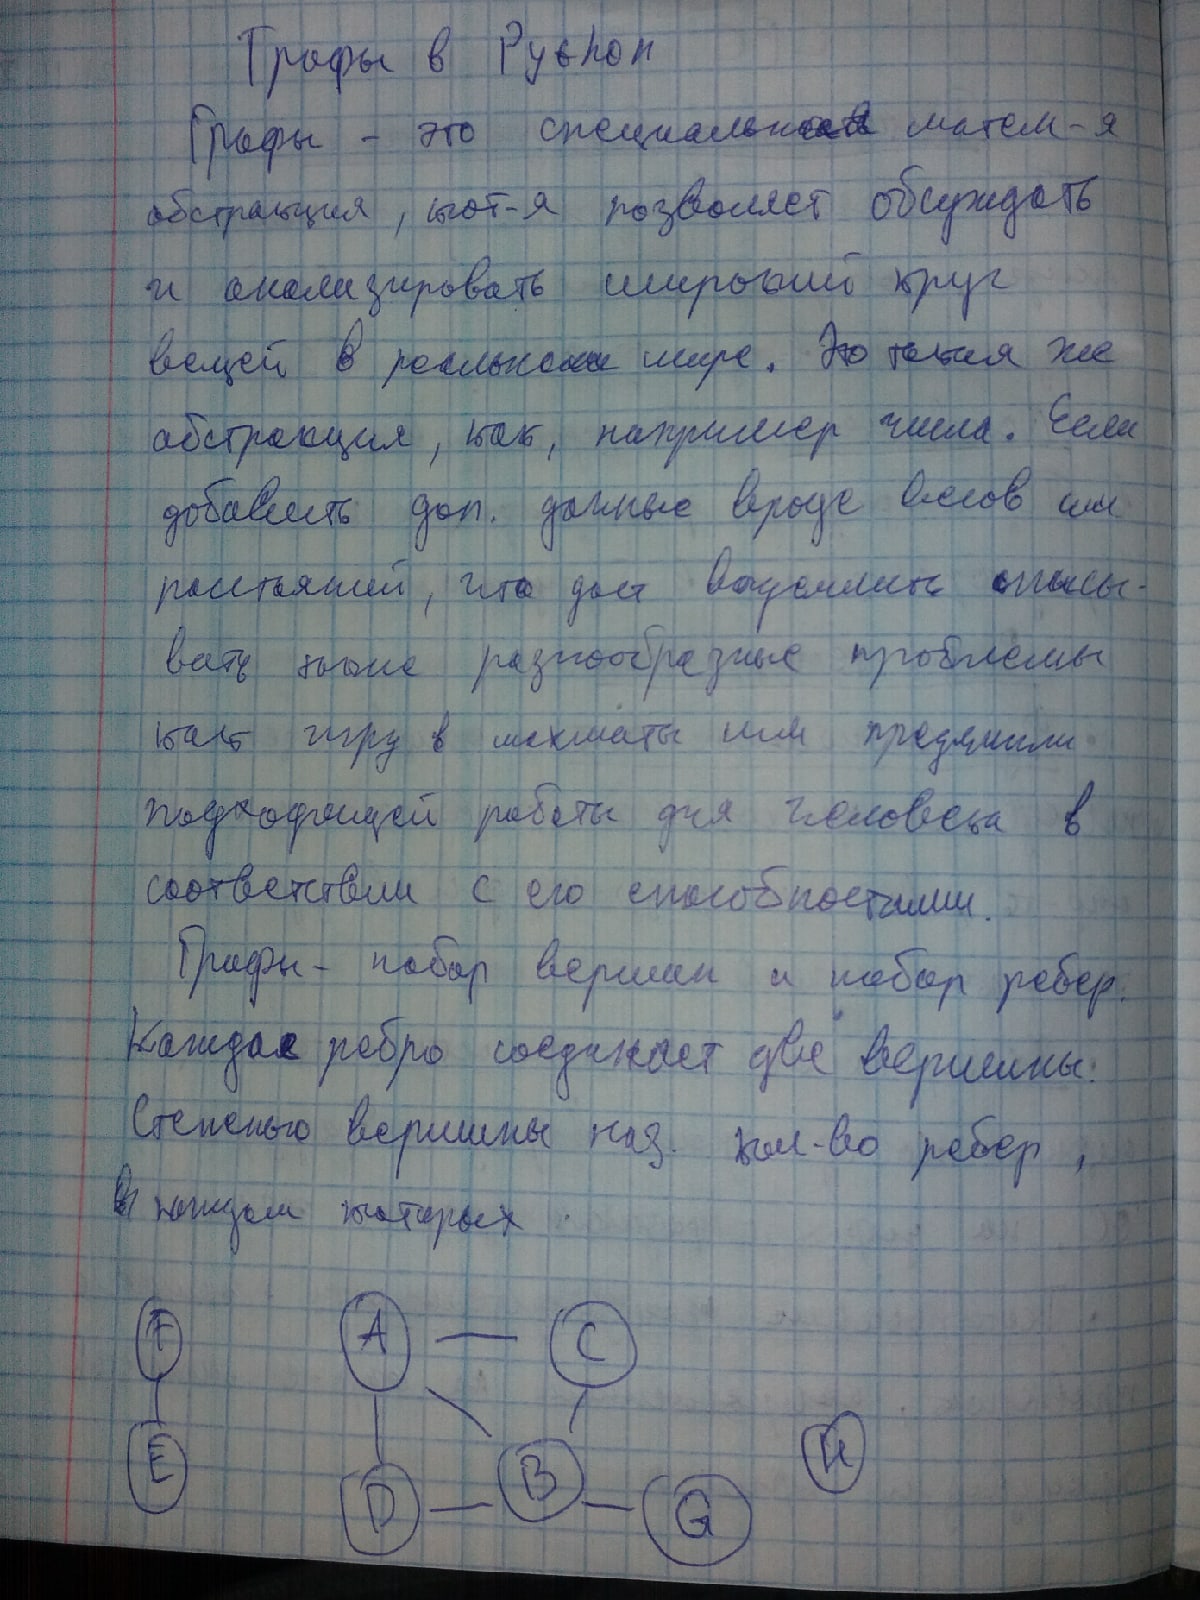 Графы в Python
Графы - это специальная матем-я
абстракция, кот-я позволяет обсуждать
и анализировать широкий круг
вещей в реальном мире. Это такая же
абстракция, как, например числа. Если
добавить доп. данные вроде весов или
расстояний, что даст описы-
вать такие разнообразные проблемы
как игру в шахматы или
подходящей работы для человека в
соответствии с его способностями.
Графы - набор вершин и набор ребер.
Каждое ребро соединяет две вершины.
Степенью вершины наз. кол-во ребер,
каждом которых
F A C
E D B G H